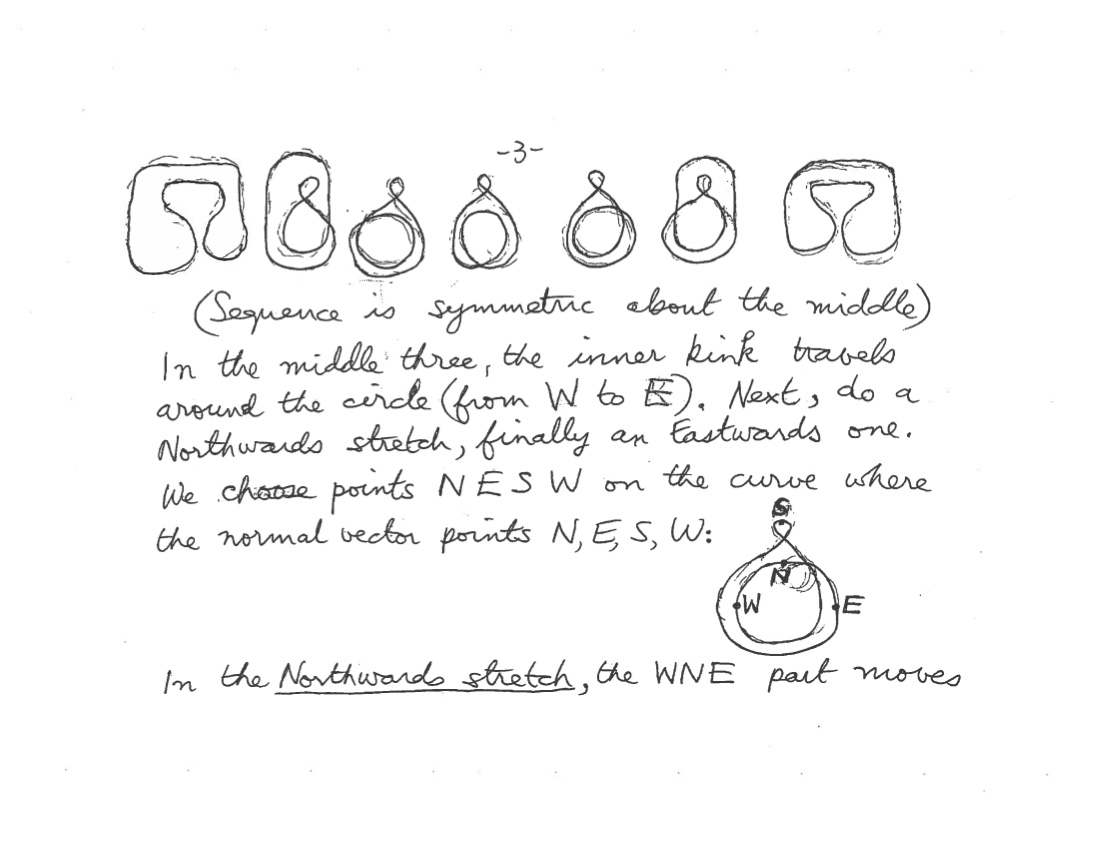 -3-
(Sequence is symmetric about the middle)
In the middle three, the inner kink travels
around the circle (from W to E). Next, do a
Northwards stretch, finally an Eastwards one.
We choose points N E S W on the curve where
the normal vector points N, E, S, W:
S
N
W E
In the Northwards stretch, the WNE part moves